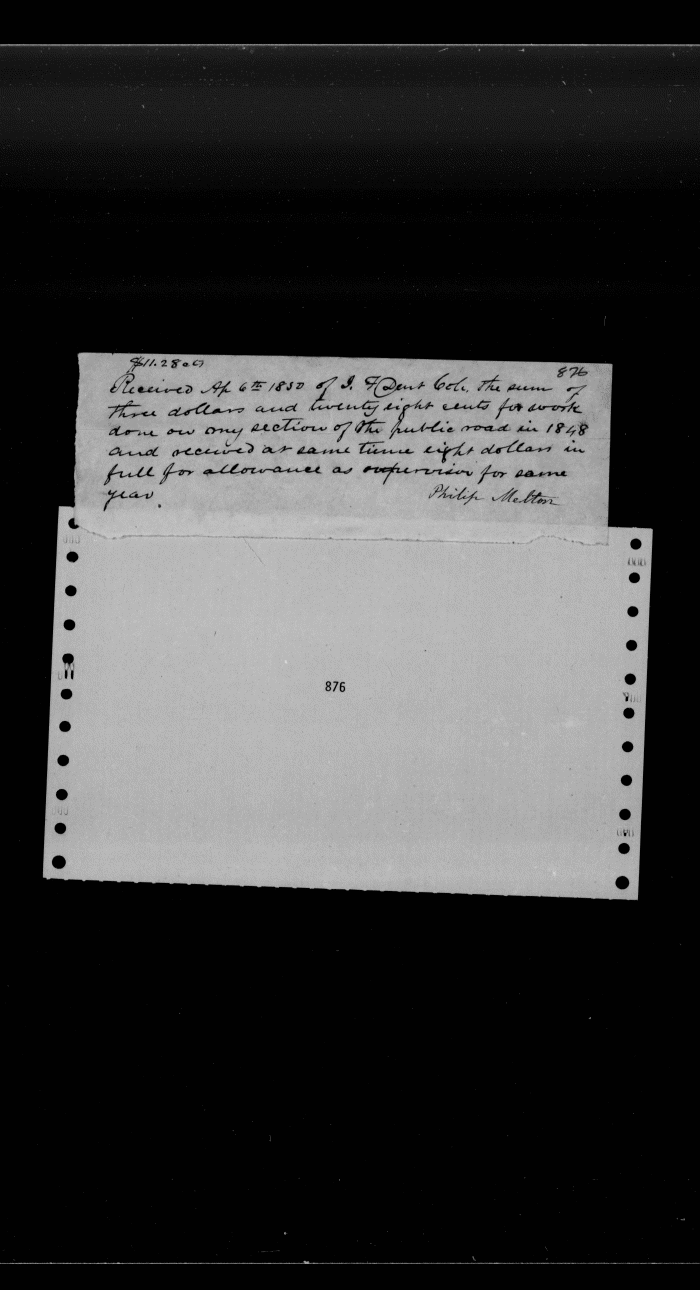 $11.28 cts
876
Received Ap 6th 1850 of J. F Dent Col. the sum of
three dollars and twenty eight cents for work
done on my section of the public road in 1848
and received at same time eight dollars in
full for allowance as supervisor for same
year.
Philip Melton
876